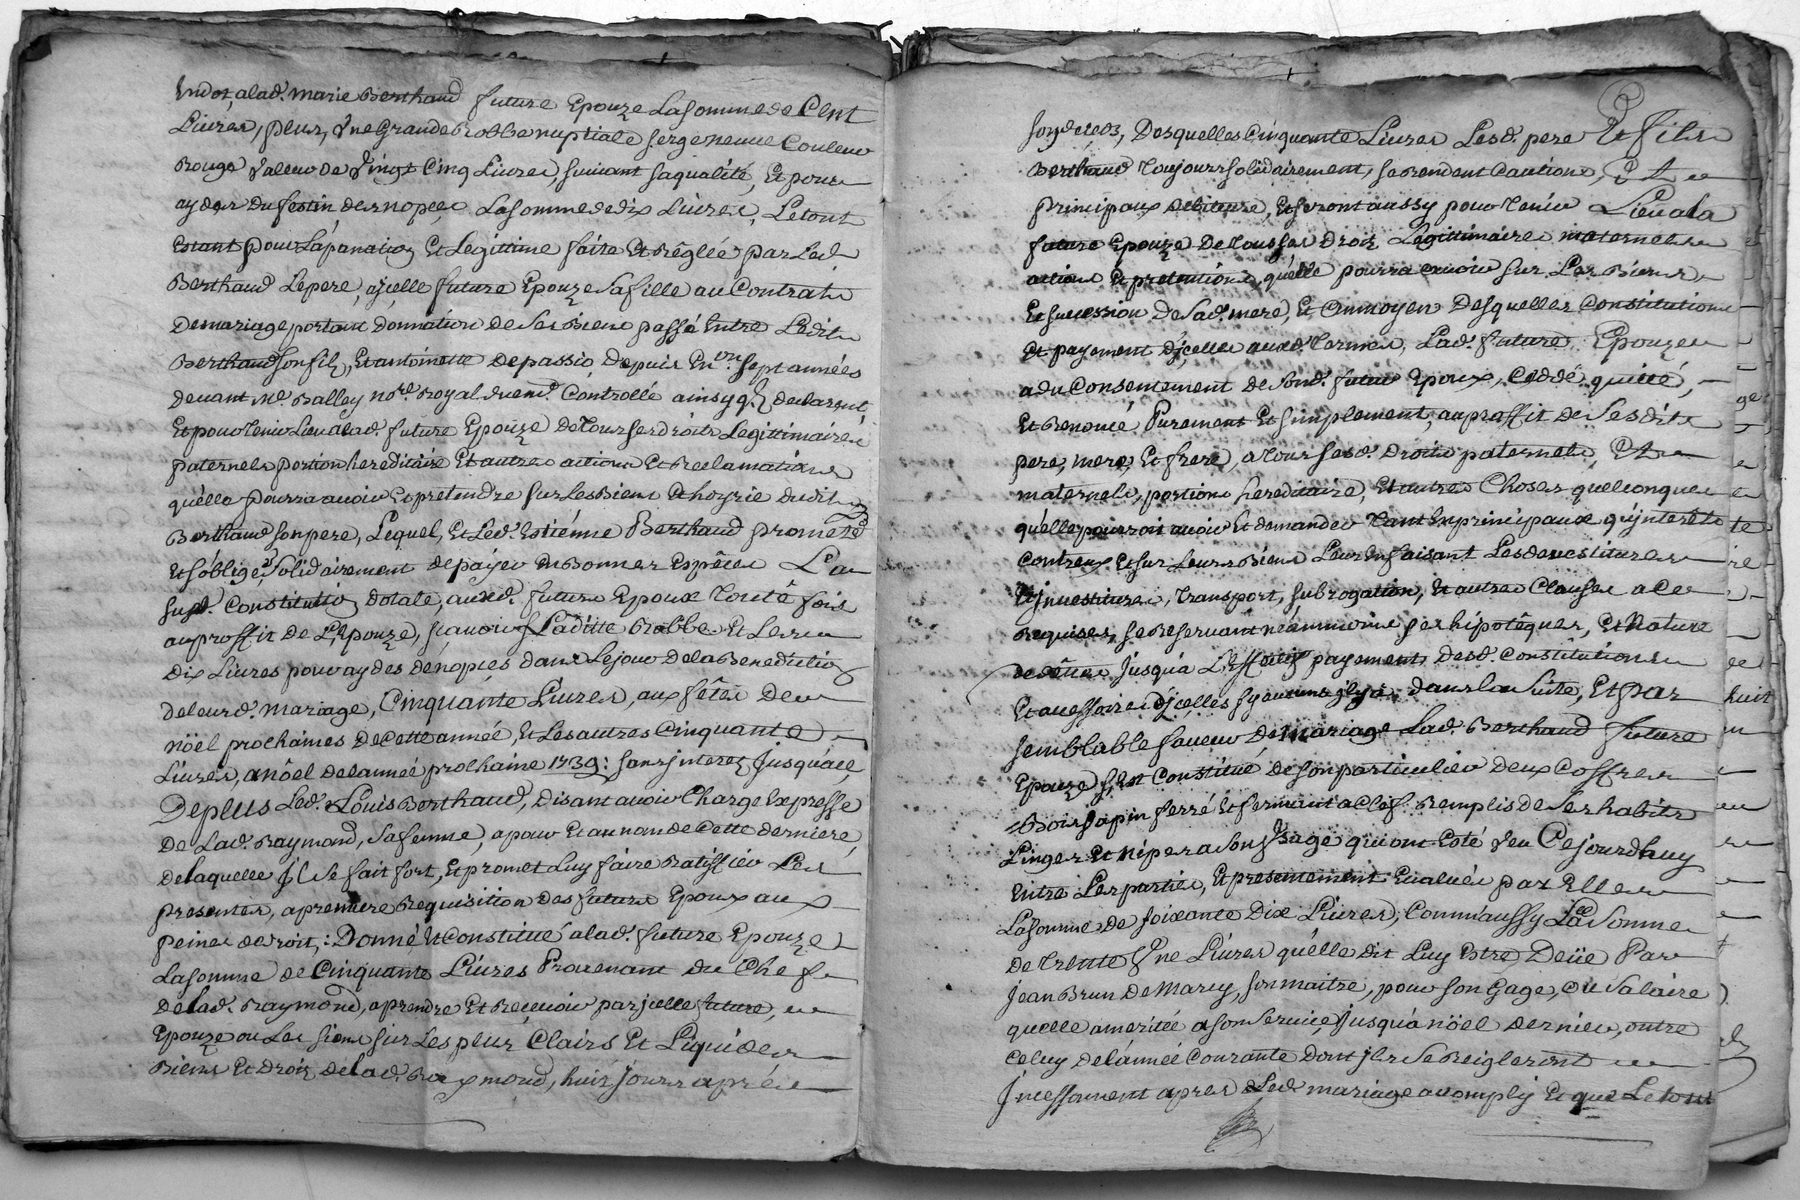 Endot, alad. marie Berthaud future Epouze La somme de Cent
Liures, plus, Vne Grande Robbe nuptiale serge neuue Couleur
Rouge Valeur de Vingt Cinq Liures, suiuant sa qualité, Et pour
ayder du festin des nopces La somme de dix Liures, Le tout
Estant pour L'apanaion Et Legittime faite Et Réglée par Led.
Berthaud Le pere, ajcelle future Epouze Sa fille au Contrat
De mariage portant donnation de Ses Biens passé Entre Ledit
Berthaud son filz, Et antoinette Depassio, Depuis En.on sept années
Deuant Me. Balley no.re Royal Controllé ainsy q. declarent
Et pour Tenir Lieu alad. future Epouze De Tous ses droits Legittimaires
paternels portion hereditaire Et autres actions Et Reclamations
qu'elle pourra auoir Et pretendre sur Les Biens Et hoyrie dudit
Berthaud son pere, Lequel, Et Led. Estiénne Berthaud promete
Et s'oblige Solidairement de payer En Bonnes Espéces La
susd. Constitution dotale, auxd. futurs Epoux Toute fois
au proffit de L'Epouze, scauoir Laditte Robbe Et Les
Dix Liures pour aydes de nopces dans Le jour de la Benediction
de leurd. mariage, Cinquante Liures, aux fêtes de
nöel prochaines de cette année, Et Les autres Cinquante
Liures, a nôel de l'année prochaine 1739: sans jnterez Jusqu'alé,
De plus Led. Louis Berthaud, disant auoir Charge Expresse
De Lad. Raymond, Sa femme, a pour Et au nom de Cette derniere,
de laquelle Jl Se fait fort, Et promet Luy faire Ratiffier Les
presentes, a premiere Requisition des futurs Epoux aux
peines de droit,: Donné Et Constitué alad. future Epouze
La somme de Cinquante Liures Prouenant du Chef
de lad. Raymond, a prendre Et Reçeuoir par jcelle future,
Epouze ou Les siens sur Les plus Clairs Et Liquides
Biens Et Droiz de lad. Raymond, huit jours aprés
Desquelles Cinquante Liures Lesd. pere Et fils
Berthaud Toujours solidairement, se Rendent Cautions, Et
Principaux debiteurs, Et seront aussy pour Tenir Lieu ala
future Epouze De Tous ses Droiz Legittimaires maternels
actions Et pretentions qu'elle pourra auoir sur Les Biens
Et succession De Sad. mere, Et Om̄oyen Desquelles Constitutions
Et payement d'jcelles auxd. Termes, Lad. future Epouze
a du Consentement de Sond. futur Epoux, Ceddé, quitté,
Et Renoncé Purement Et simplement, au proffit de Sesdits
pere, mere, Et frere, a Tous Sesd. Droits paternels, Et
maternels, portions hereditaire, Et autres Choses quelconques
qu'elle pourroit auoir Et demander Tant En principaux qu'jnterêts
Contreux Et sur Leurs Biens Leur En faisant Les deuestitures
Et jnuestitures, Transport, subrogation, Et autres Clauses a Ce
Requises, se Reseruant neanmoins ses hipotêques, Et Nature
de dêttes Jusqu'a L'Effectif payement Desd. Constitutions
Et accessoires d'jcelles sy aucuns jl y a dans La Suite, Et par
semblable faueur De Mariage Lad. Berthaud future
Epouze s'Est Constitué de son particulier deux Coffres
Bois sapin ferré Et fermant a Clef Remplis de Ses habits
Linges Et nipes a Son Vsage qui ont Esté Veu Cejourdhuy
Entre Les parties, Et presentement Evalués par Elles
La somme de soixante Dix Liures, Comm'aussy La Somme
De Trente Vne Liures qu'elle dit Luy Estre Deüe Par
Jean Brun De Marcy, son maitre, pour son Gage, ou Salaire
qu'elle a meritée a Son Seruice Jusqu'a nöel dernier, outre
Celuy de l'année Courante dont jls Se Reigleront
Jncessamment apres Led. mariage accomply Et que Le tout